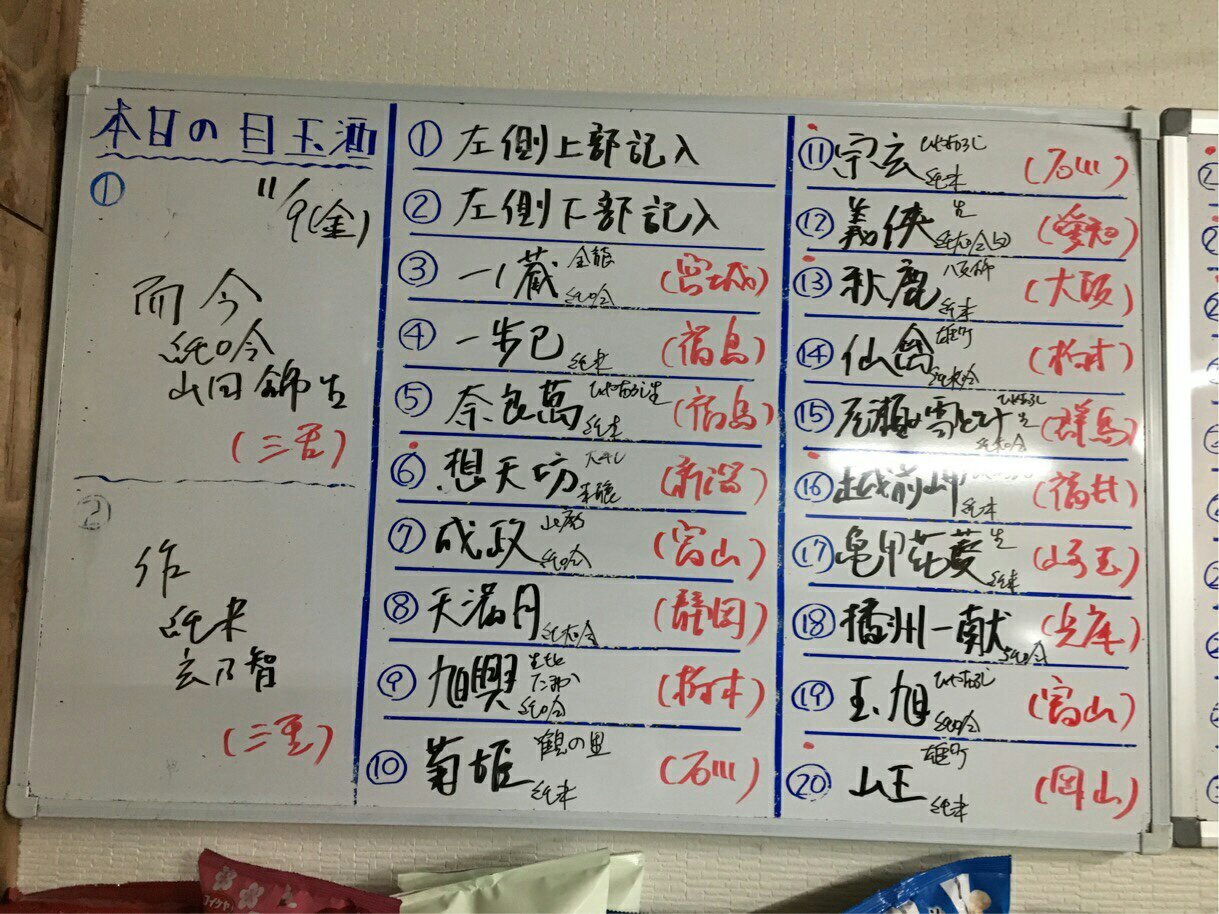 本日の目玉酒
①
11/9(金)
而今
純吟
山田錦生
(三重)
②
作
純米
玄乃智
(三重)
① 左側上部記入
② 左側下部記入
③ 一ノ蔵 金龍 純吟 (宮城)
④ 一歩己 純米 (福島)
⑤ 奈良萬 ひやおろし生 純米 (福島)
⑥ 想天坊 (新潟)
⑦ 成政 山廃 純吟 (富山)
⑧ 天満月 純米吟 (静岡)
⑨ 旭興 純吟 (栃木)
⑩ 菊姫 鶴の里 純米 (石川)
⑪ 宗玄 ひやおろし 純米 (石川)
⑫ 義侠 生 (愛知)
⑬ 秋鹿 純米 (大阪)
⑭ 仙禽 雄町 純米吟 (栃木)
⑮ 尾瀬の雪どけ ひやおろし 純米吟 (群馬)
⑯ 越前岬 純米 (福井)
⑰ 亀甲花菱 生 純米 (埼玉)
⑱ 播州一献 純吟 (兵庫)
⑲ 玉旭 ひやおろし 純吟 (富山)
⑳ 山王 雄町 純米 (岡山)